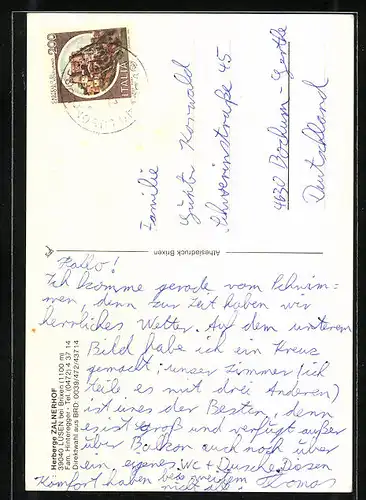 Herberge ZALNERHOF
39040 LÜSEN bei Brixen (1100 m)
Fam. Hinteregger - Tel. (0472) 4 37 14
Direktwahl aus BRD: 0039/472/43714
Athesiadruck Brixen
ITALIA
200
Hallo!
Ich komme gerade vom Schwim-
men, denn zur Zeit haben wir
herrliches Wetter. Auf dem unteren
Bild habe ich ein Kreuz
gemacht; unser Zimmer (ich
teile es mit drei Anderen)
ist unes der Besten, denn
es ist groß und verfügt außer
über Balkon auch noch über
ein eigenes WC + Dusche. Diesen
Komfort haben die meisten
nicht all. Thomas
Familie
Günter Korwald
Schwerinstraße 45
4630 Bochum-Gerthe
Deutschland